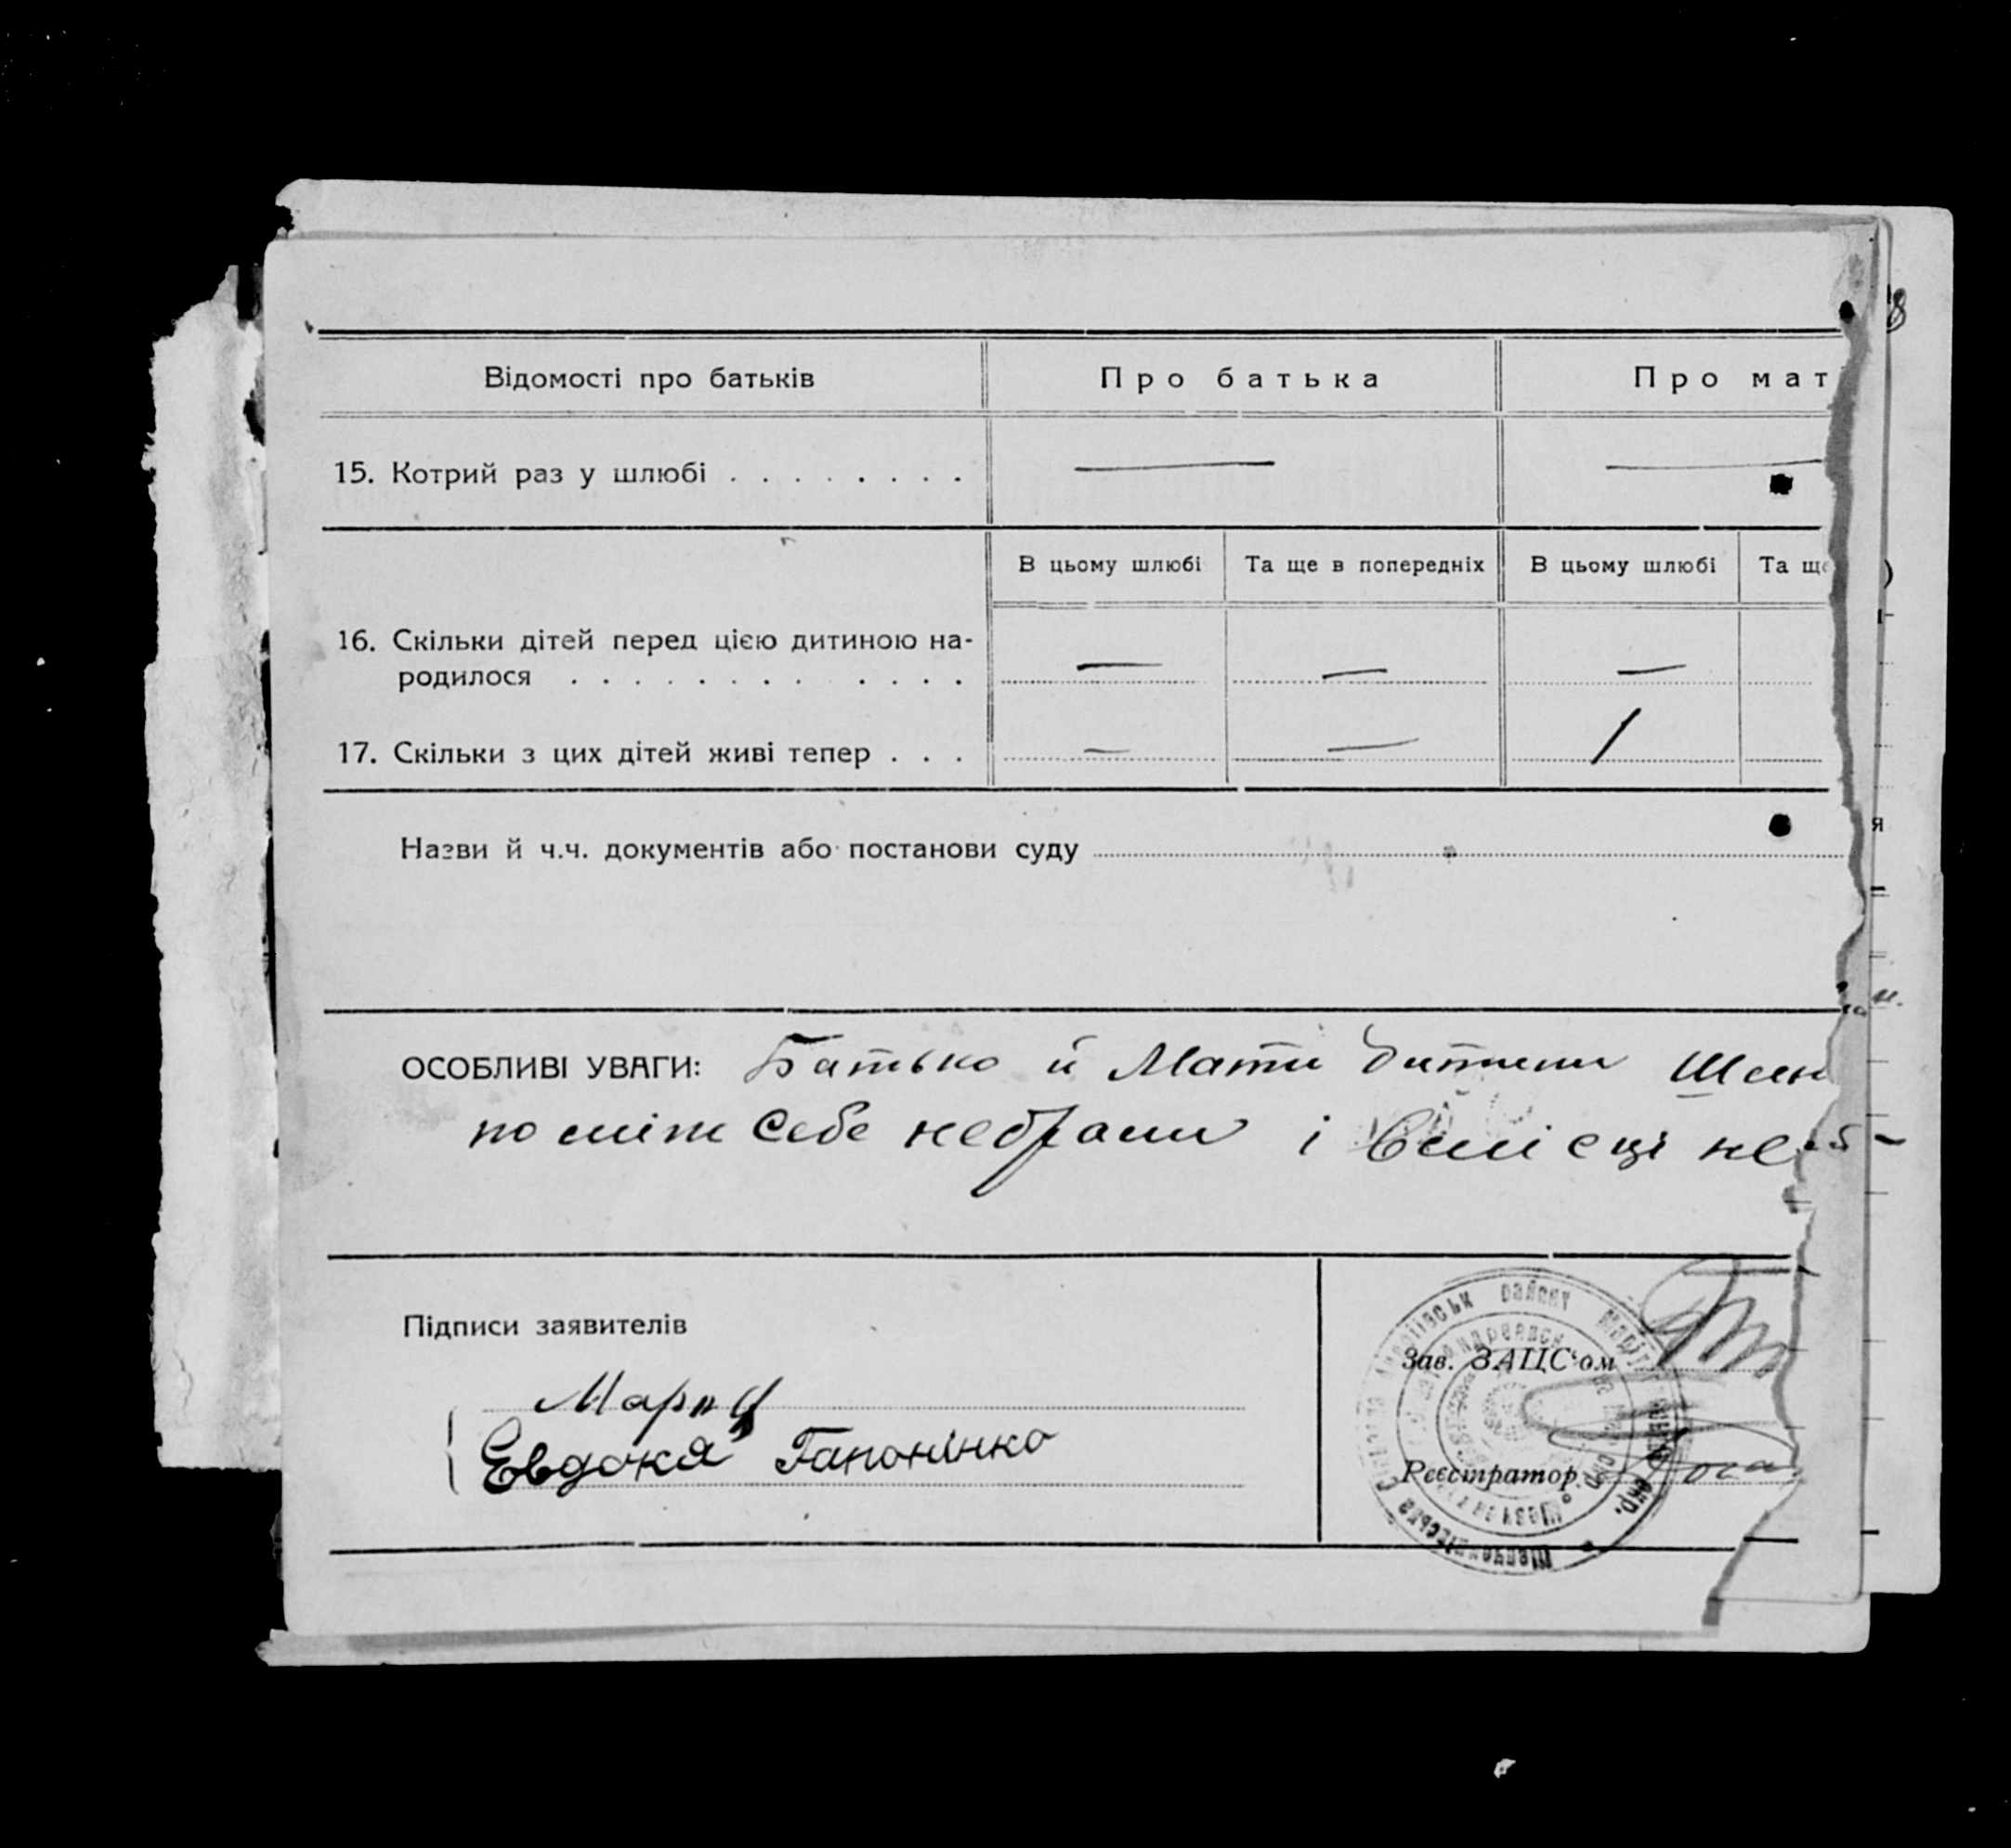 Відомості про батьків
Про батька
Про мат
15. Котрий раз у шлюбі . . . . . . . .
В цьому шлюбі
Та ще в попередніх
В цьому шлюбі
Та ще
16. Скільки дітей перед цією дитиною на-
родилося . . . . . . . . . . . .
17. Скільки з цих дітей живі тепер . . .
/
Назви й ч.ч. документів або постанови суду
я
ОСОБЛИВІ УВАГИ: Батько й Мати дитини
по між себе небрали і
Підписи заявителів
Зав. ЗАЦС'ом
Евдокя Гапонінко
Реєстратор